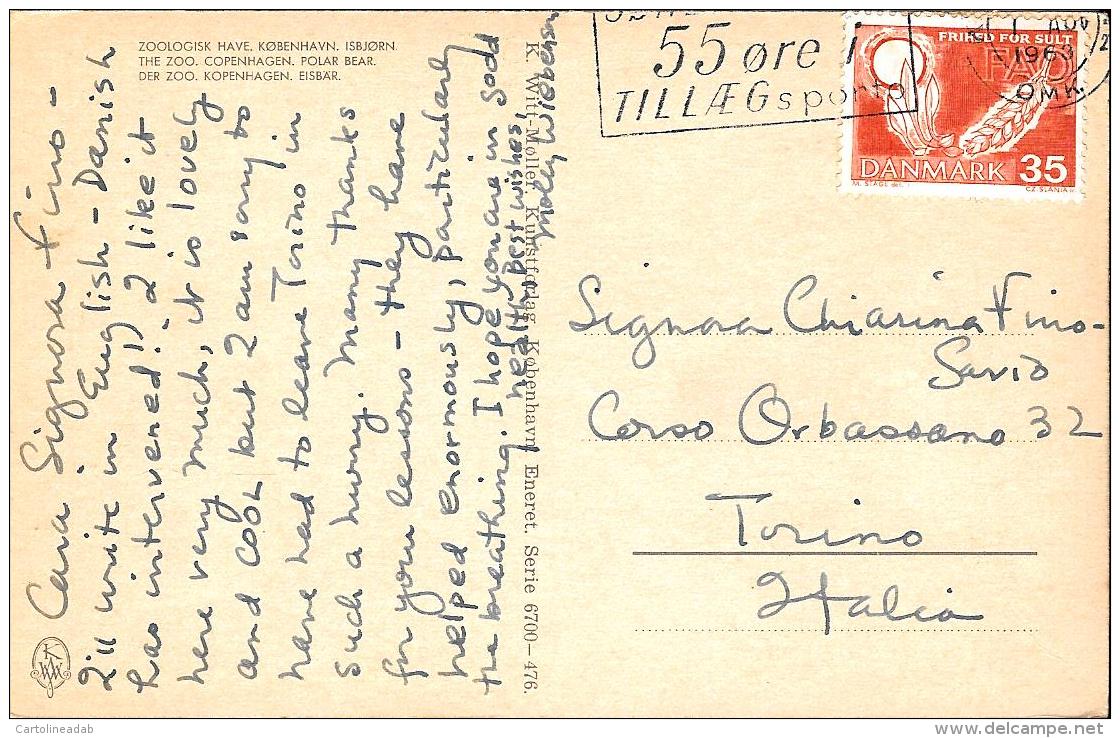 ZOOLOGISK HAVE. KØBENHAVN. ISBJØRN.
THE ZOO. COPENHAGEN. POLAR BEAR.
DER ZOO. KOPENHAGEN. EISBÄR.
Cara Signora Fino -
I'll write in English - Danish
has intervened!) I like it
here very much, it is lovely
and cool but I am sorry to
have had to leave Torino in
such a hurry. Many thanks
for your lessons - they have
helped enormously, particularly
the breathing. I hope you are in good
health, Best wishes,
K. Witt-Møller, Kunstforlag, København Eneret. Serie 6700-476.
KWM
55 øre i
TILLÆGsporto
1963
OMK.
FRIHED FOR SULT
FAO
DANMARK 35
M. STAGE del.
CZ. SLANIA
Signora Chiarina Fino-
Savio
Corso Orbassano 32
Torino
Italia
Cartolineadab
delcampe.net